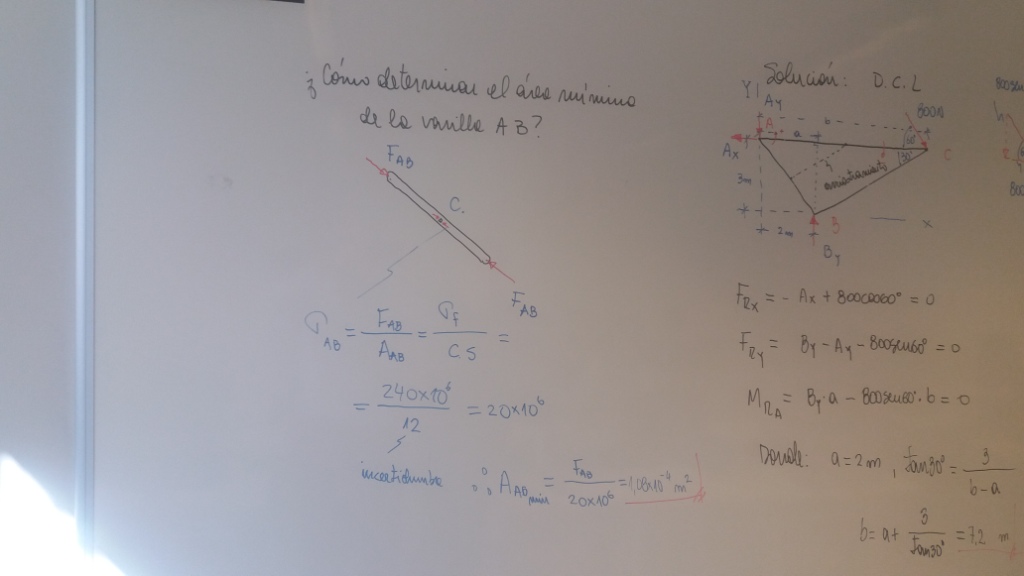 ¿Cómo determinar el área mínima
de la varilla AB?
F_AB
C.
F_AB
σ_AB = F_AB / A_AB = σ_f / CS =
= 240x10⁶ / 12 = 20x10⁶
incertidumbre
∴ A_AB mín = F_AB / 20x10⁶ = 1,08x10⁻⁴ m²
Solución: D.C.L
Y
Ay
A
a
b
800N
60°
30°
C
Ax
3m
2m
B
By
x
F_Rx = - Ax + 800cos60° = 0
F_Ry = By - Ay - 800sen60° = 0
M_RA = By·a - 800sen60°·b = 0
Donde: a = 2m, tan30° = 3 / b-a
b = a + 3 / tan30° = 7,2 m